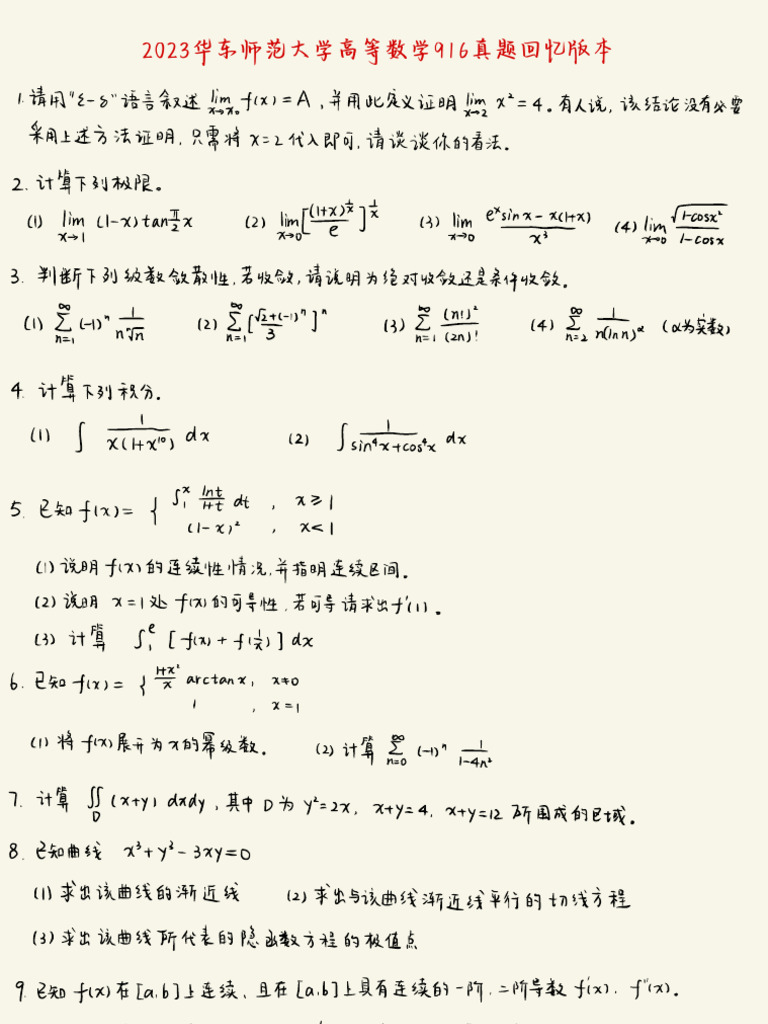 2023华东师范大学高等数学916真题回忆版本
1.请用"ε-δ"语言叙述 lim_{x→x₀} f(x)=A,并用此定义证明 lim_{x→2} x²=4。有人说,该结论没有必要
采用上述方法证明,只需将 x=2 代入即可,请谈谈你的看法.
2.计算下列极限。
(1) lim_{x→1} (1-x)tan(π/2)x (2) lim_{x→0} [(1+x)^{1/x}/e]^{1/x} (3) lim_{x→0} (e^x sinx-x(1+x))/x³ (4) lim_{x→0} √(1-cosx²)/(1-cosx)
3.判断下列级数敛散性,若收敛,请说明为绝对收敛还是条件收敛。
(1) ∑_{n=1}^{∞} (-1)^n 1/(n ⁿ√n) (2) ∑_{n=1}^{∞} [(√2+(-1)^n)/3]^n (3) ∑_{n=1}^{∞} (n!)²/(2n)! (4) ∑_{n=2}^{∞} 1/(n(ln n)^α) (α为实数)
4.计算下列积分.
(1) ∫ 1/(x(1+x¹⁰)) dx (2) ∫ 1/(sin⁴x+cos⁴x) dx
5.已知f(x)= { ∫_1^x lnt/(1+t) dt , x≥1
(1-x)² , x<1
(1)说明f(x)的连续性情况,并指明连续区间。
(2)说明 x=1处 f(x)的可导性,若可导请求出f'(1)。
(3)计算 ∫_1^e [f(x)+f(1/x)]dx
6.已知f(x)= { (1+x²)/x arctanx, x≠0
1 , x=1
(1)将f(x)展开为x的幂级数。 (2)计算 ∑_{n=0}^{∞} (-1)^n 1/(1-4n²)
7.计算 ∬_D (x+y) dxdy,其中D为 y²=2x, x+y=4, x+y=12 所围成的区域。
8.已知曲线 x³+y³-3xy=0
(1)求出该曲线的渐近线 (2)求出与该曲线渐近线平行的切线方程
(3)求出该曲线所代表的隐函数方程的极值点
9.已知 f(x)在[a,b]上连续、且在[a,b]上具有连续的一阶.二阶导数 f'(x). f''(x).